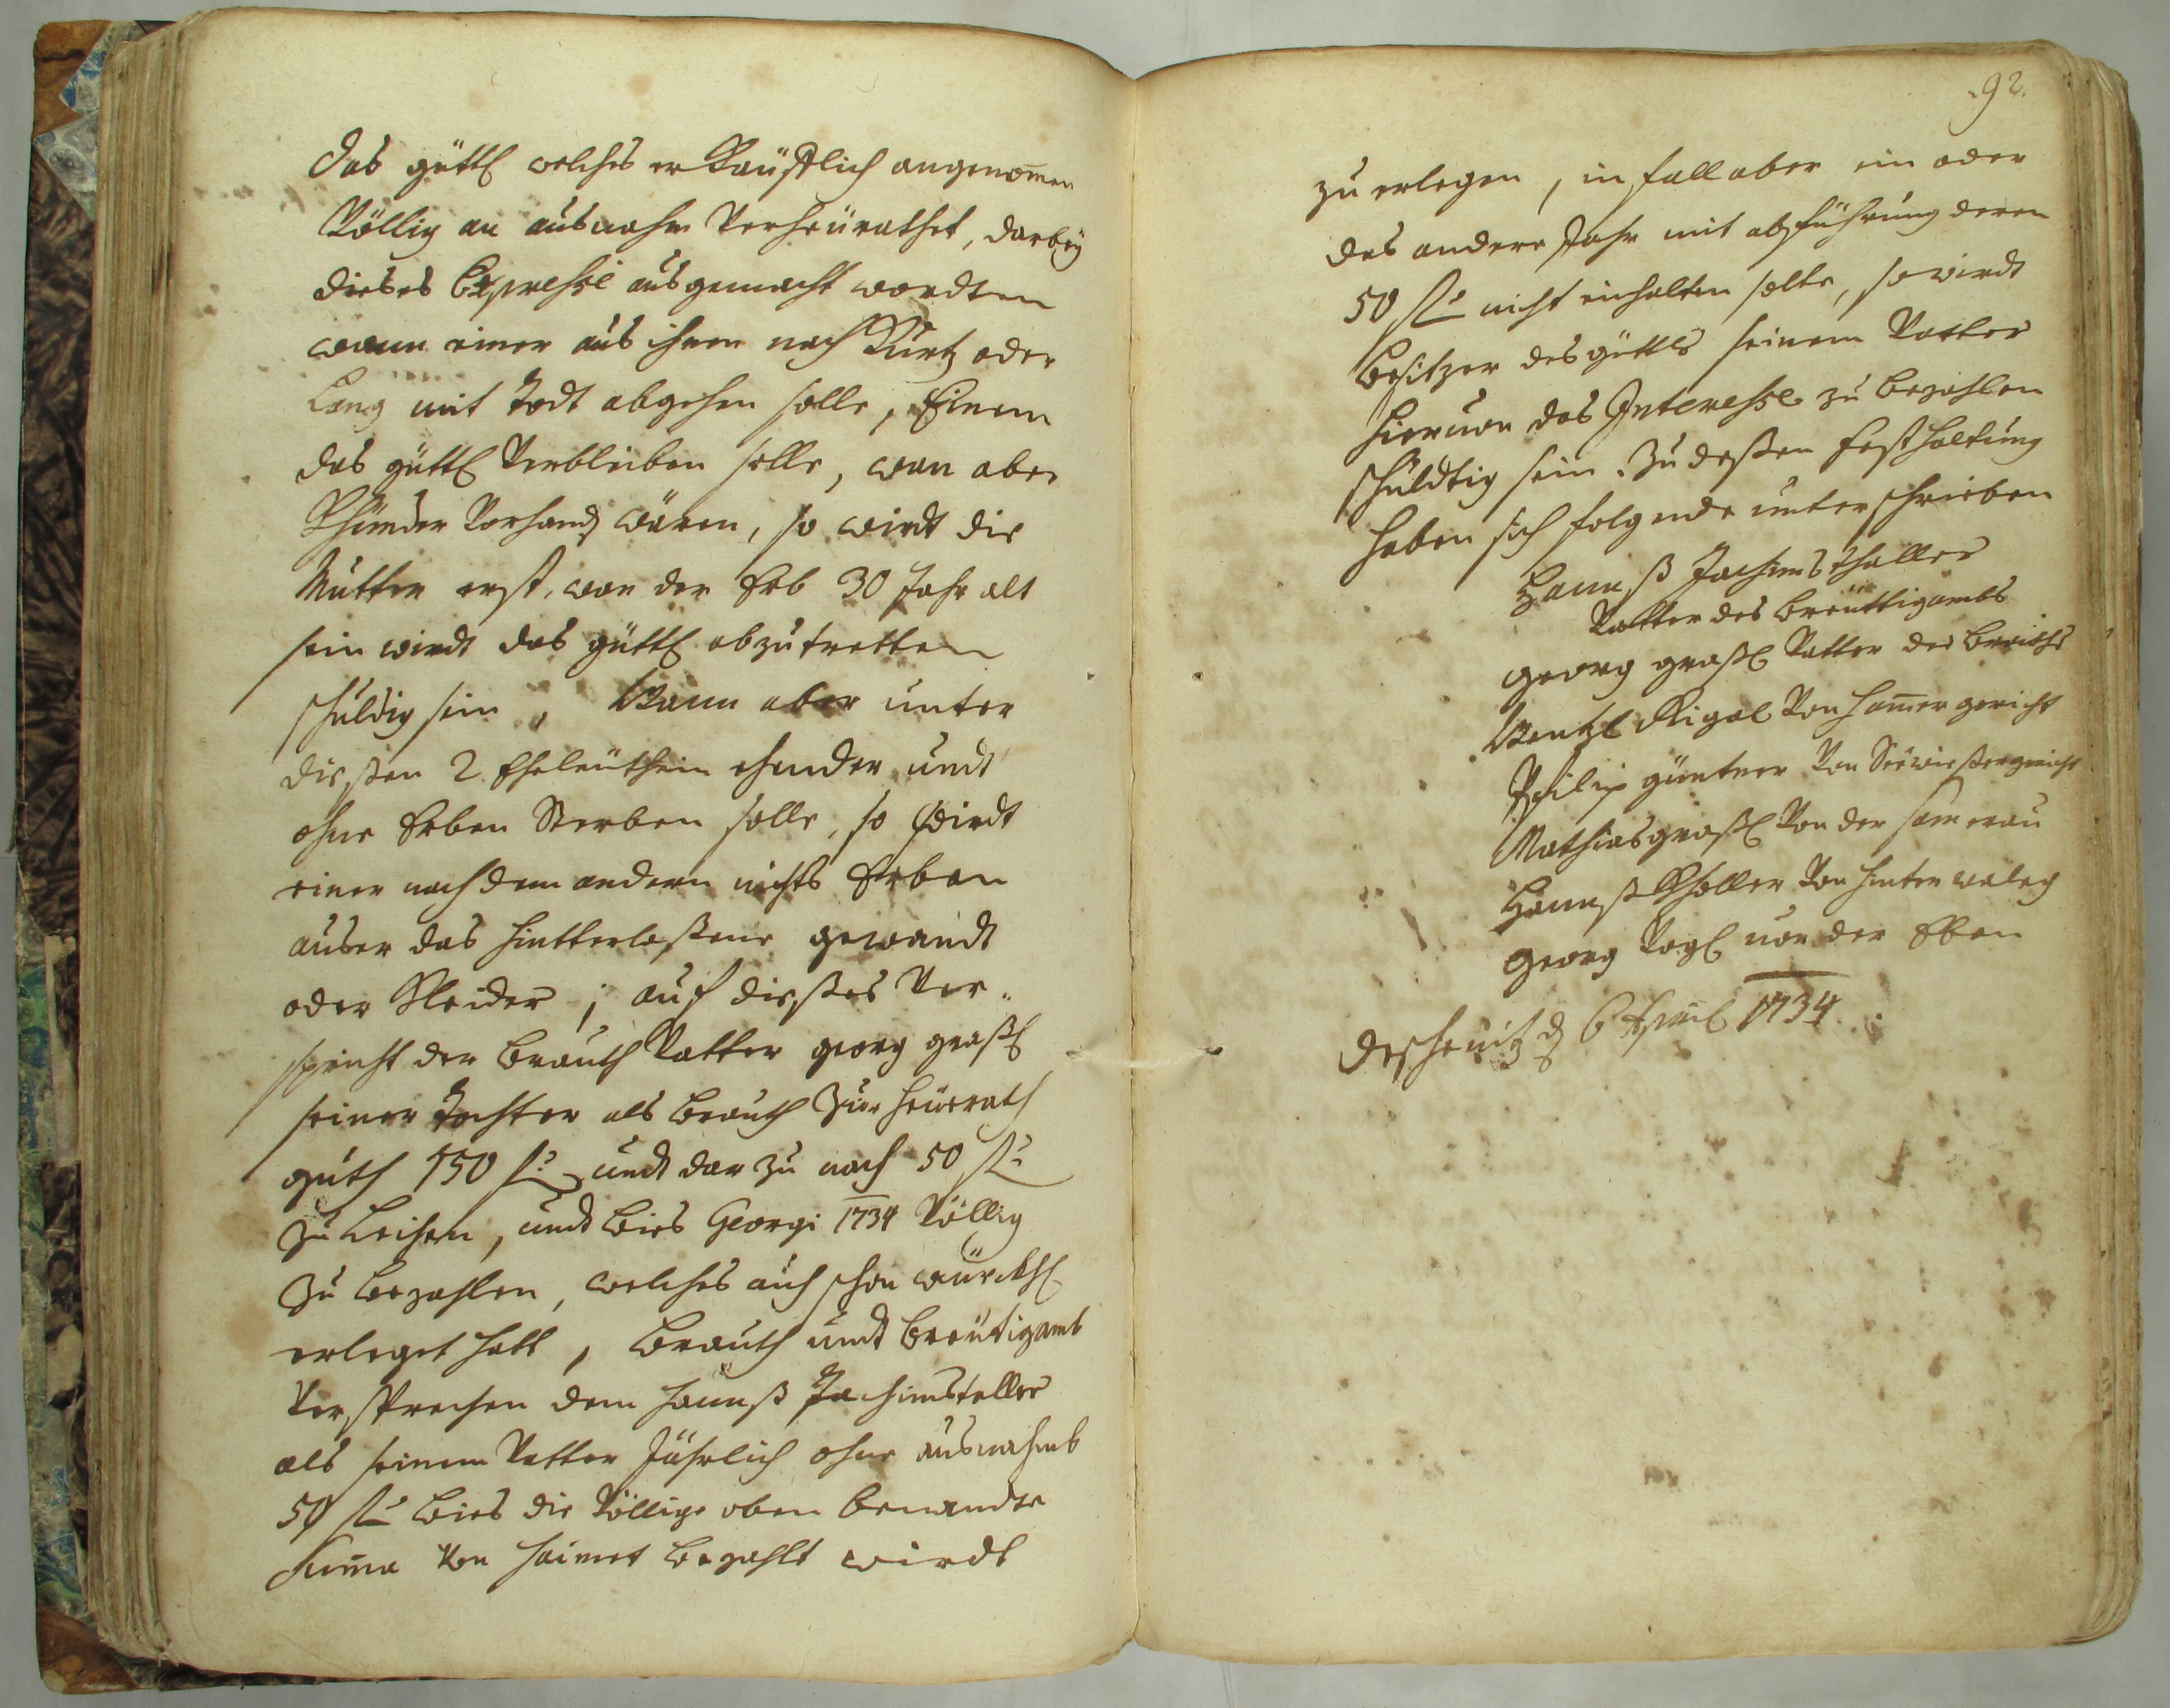 das güttl welches er Kaüfflich angenom̄en
Völlig an ausnahm Verheürathet, darbeÿ
dieses Expresse ausgemacht wordten
wann einer aus ihnen nach Kurtz oder
Lang mit Todt abgehen solle, Einem
das güttl Verbleiben solle, wan aber
Khinder Vorhandt wären, so wirdt die
Mutter erst, wan der Erb 30 Jahr alt
sein wirdt das güttl abzutretten
schuldig sein, Wann aber unter
dissen 2. Eheleüthein ehender undt
ohne Erben Sterben solle, so wirdt
einer nach dem andern nichts Erben
auser das hintterlassene gewandt
oder Kleider; auf disses Ver¬
spricht der Brauth Vatter georg grassl
seiner Tochter als Brauth Zur heürath
guth 150 f: undt darzu noch 50 f:
Zu Leihen, undt bies Georgi 1734 Völlig
Zu bezahlen, welches auch schon würckhl
erleget hatt, Brauth undt Breütigamb
Versprechen dem hannß Jachimstaller
als seinem Vatter Jährlich ohne ausnahmb
50 f: bies die Völlige oben benandte
Sum̄a Von haimet bezahlt wirdt
92.
zu erlegen, in fall aber ein oder
das andere Jahr mit abführung deren
50 f: nicht einhalten solte, so wirdt
Besitzer des güttls seinem Vatter
hiervon das Interesse zu bezahlen
schuldtig sein. Zu dessen festhaltung
haben sich folgende unterschrieben
Hannß Jachimsthaller
Vatter des breüttigambs
georg grassl Vatter der brauth
Wentzl Rigal Von ham̄ergericht
Philip güntner Von Seewissergericht
Mathias grassl Von der ham̄erau
Hannß Kholler Von hinter
georg Vogl von der Eben
Deschenitz d 6 April 1734